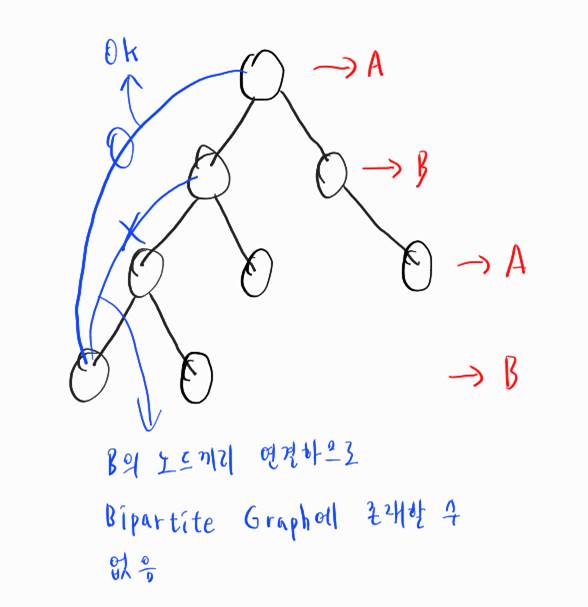 Ok
→ A
→ B
→ A
→ B
B의 노드끼리 연결하므로
Bipartite Graph에 존재할 수
없음